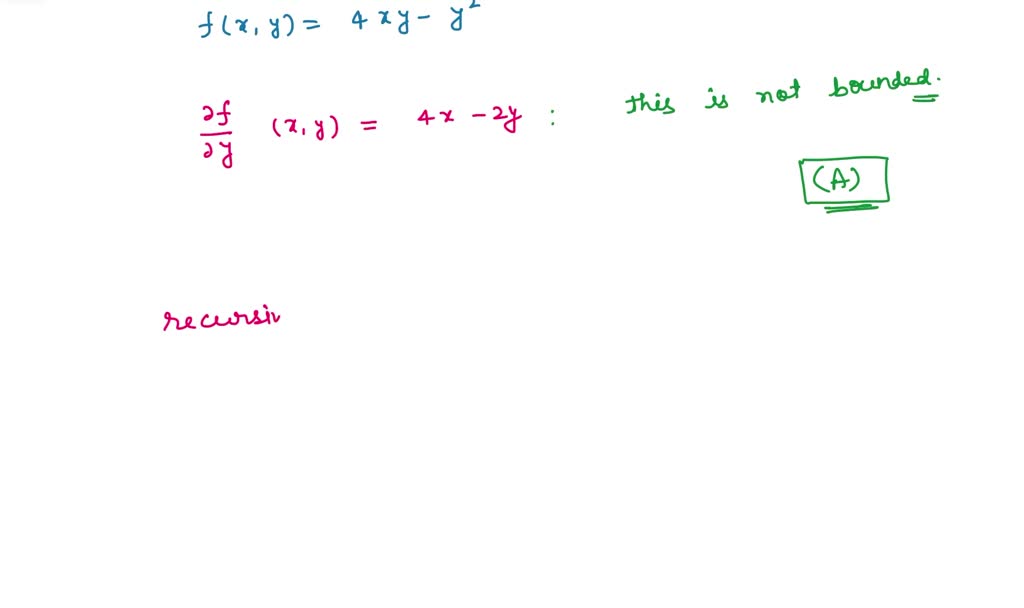 f(x, y) = 4xy - y²
∂f/∂y (x, y) = 4x - 2y : this is not bounded.
(A)
recursi